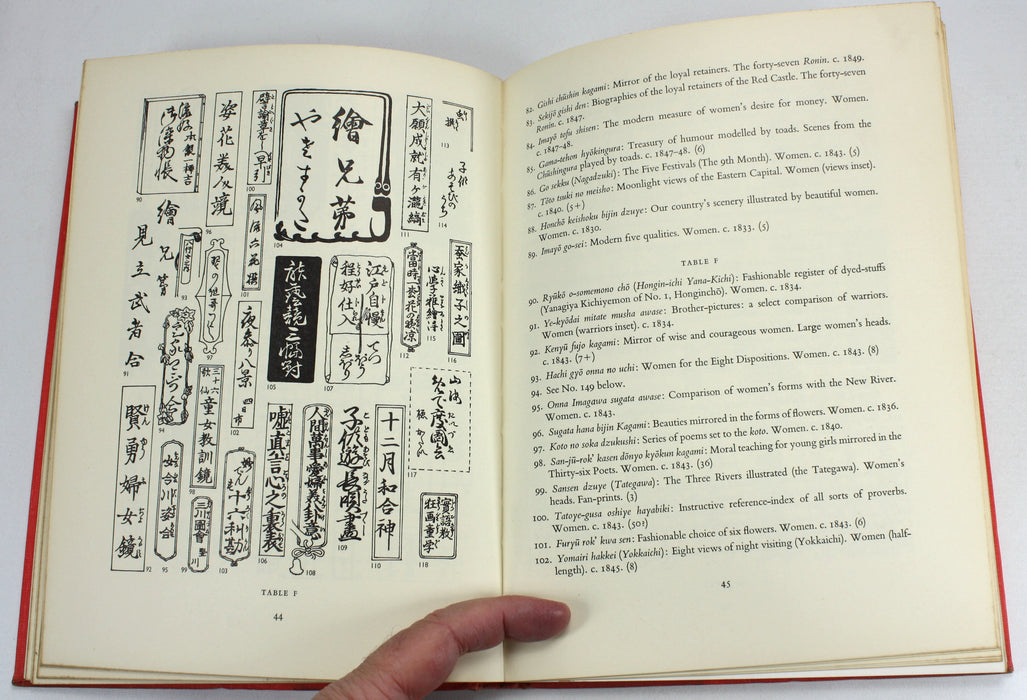 繪兄弟
やきすまのき
姿花美人鏡
90
96
100
101
104
大願成就有ヶ瀧縞
111
113
114
繪兄弟
見立武者合
91
93
97
夜参り八景
四日市
102
族衣競三幅対
105
江戸自慢
程好仕入
107
當時
112
115
吾家織子之圖
116
賢勇婦女鏡
92
94
95
三十六
歌仙
童女教訓鏡
98
三川圖會
竪川
99
103
嘘真言心之裏表
106
人間萬事愛婦美卦意
108
子供遊長唄畫
109
十二月和合神
110
117
實語教
狂画童学
118
TABLE F
44
82. Gishi chūshin kagami: Mirror of the loyal retainers. The forty-seven Ronin. c. 1849.
83. Sekijō gishi den: Biographies of the loyal retainers of the Red Castle. The forty-seven
Ronin. c. 1847.
84. Imayō tofu shisen: The modern measure of women's desire for money. Women.
c. 1847-48.
85. Gama-tehon hyōkingura: Treasury of humour modelled by toads. Scenes from the
Chūshingura played by toads. c. 1847-48. (6)
86. Go sekku (Nagadzuki): The Five Festivals (The 9th Month). Women. c. 1843. (5)
87. Tōto tsuki no meisho: Moonlight views of the Eastern Capital. Women (views inset).
c. 1840. (5+)
88. Honchō keishoku bijin dzuye: Our country's scenery illustrated by beautiful women.
Women. c. 1830.
89. Imayō go-sei: Modern five qualities. Women. c. 1833. (5)
TABLE F
90. Ryūkō o-somemono chō (Hongin-ichi Yana-Kichi): Fashionable register of dyed-stuffs
(Yanagiya Kichiyemon of No. 1, Honginchō). Women. c. 1834.
91. Ye-kyōdai mitate musha awase: Brother-pictures: a select comparison of warriors.
Women (warriors inset). c. 1834.
92. Kenyū fujo kagami: Mirror of wise and courageous women. Large women's heads.
c. 1843. (7+)
93. Hachi gyō onna no uchi: Women for the Eight Dispositions. Women. c. 1843. (8)
94. See No. 149 below.
95. Onna Imagawa sugata awase: Comparison of women's forms with the New River.
Women. c. 1843.
96. Sugata hana bijin Kagami: Beauties mirrored in the forms of flowers. Women. c. 1836.
97. Koto no soka dzukushi: Series of poems set to the koto. Women. c. 1840.
98. San-jū-rok' kasen dōnyo kyōkun kagami: Moral teaching for young girls mirrored in the
Thirty-six Poets. Women. c. 1843. (36)
99. Sansen dzuye (Tategawa): The Three Rivers illustrated (the Tategawa). Women's
heads. Fan-prints. (3)
100. Tatoye-gusa oshiye hayabiki: Instructive reference-index of all sorts of proverbs.
Women. c. 1843. (50?)
101. Furyū rok' kwa sen: Fashionable choice of six flowers. Women. c. 1843. (6)
102. Yomairi hakkei (Yokkaichi): Eight views of night visiting (Yokkaichi). Women (half-
length). c. 1845. (8)
45